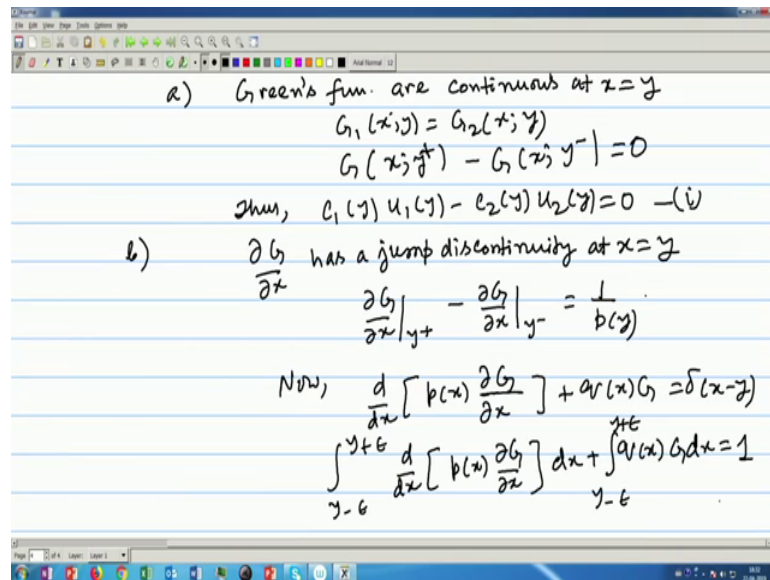 Journal
File Edit View Page Tools Options Help
Arial Normal 12
a) Green's fun. are continuous at x=y
G₁(x;y) = G₂(x;y)
G(x;y⁺) - G(x;y⁻)| = 0
Thus, c₁(y) u₁(y) - c₂(y) u₂(y) = 0 —(i)
b) ∂G/∂x has a jump discontinuity at x=y
∂G/∂x|y+ - ∂G/∂x|y- = 1/p(y)
Now, d/dx [p(x) ∂G/∂x] + q(x)G = δ(x-y)
∫_{y-ε}^{y+ε} d/dx [p(x) ∂G/∂x] dx + ∫_{y-ε}^{y+ε} q(x) G dx = 1
Page 4 of 4 Layer: Layer 1